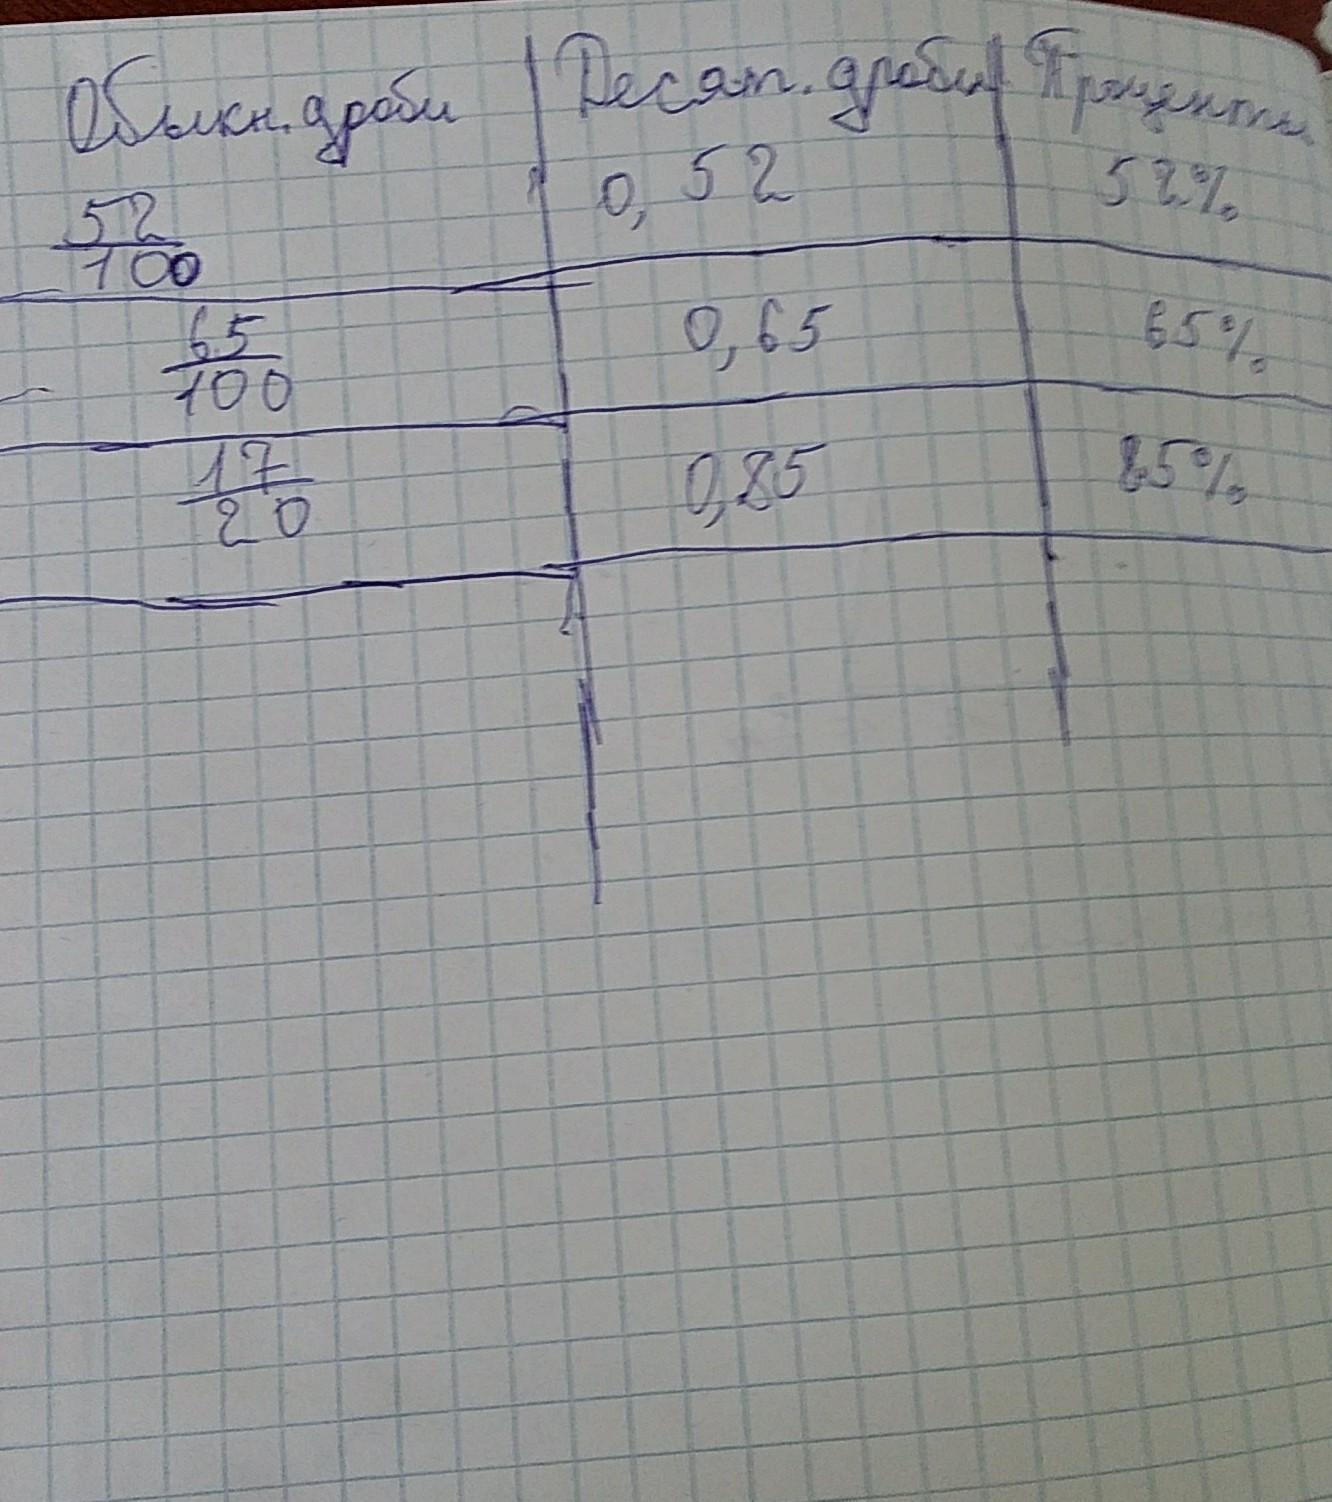 Обыкн. дроби | Десят. дроби | Проценты
52/100 | 0,52 | 52%
65/100 | 0,65 | 65%
17/20 | 0,85 | 85%